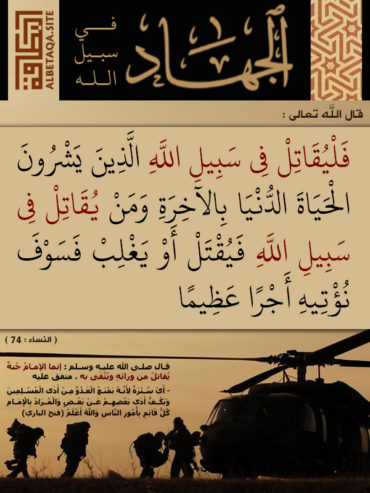 ALBETAQA.SITE
البطاقة
الجهاد
في
سبيل
الله
قال الله تعالى :
فَلْيُقَاتِلْ فِي سَبِيلِ اللَّهِ الَّذِينَ يَشْرُونَ
الْحَيَاةَ الدُّنْيَا بِالْآخِرَةِ وَمَنْ يُقَاتِلْ فِي
سَبِيلِ اللَّهِ فَيُقْتَلْ أَوْ يَغْلِبْ فَسَوْفَ
نُؤْتِيهِ أَجْرًا عَظِيمًا
( النساء : 74 )
قال صلى الله عليه وسلم : إنما الإمامُ جُنةٌ
يُقاتَلُ من ورائِه ويُتَّقى به . متفق عليه
- أَيْ سُتْرَةٌ لِأَنَّهُ يَمْنَعُ الْعَدُوَّ مِنْ أَذَى الْمُسْلِمِينَ
وَيَكُفُّ أَذَى بَعْضِهِمْ عَنْ بَعْضٍ وَالْمُرَادُ بِالْإِمَامِ
كُلُّ قَائِمٍ بِأُمُورِ النَّاسِ وَاللَّهُ أَعْلَمُ (فتح الباري)